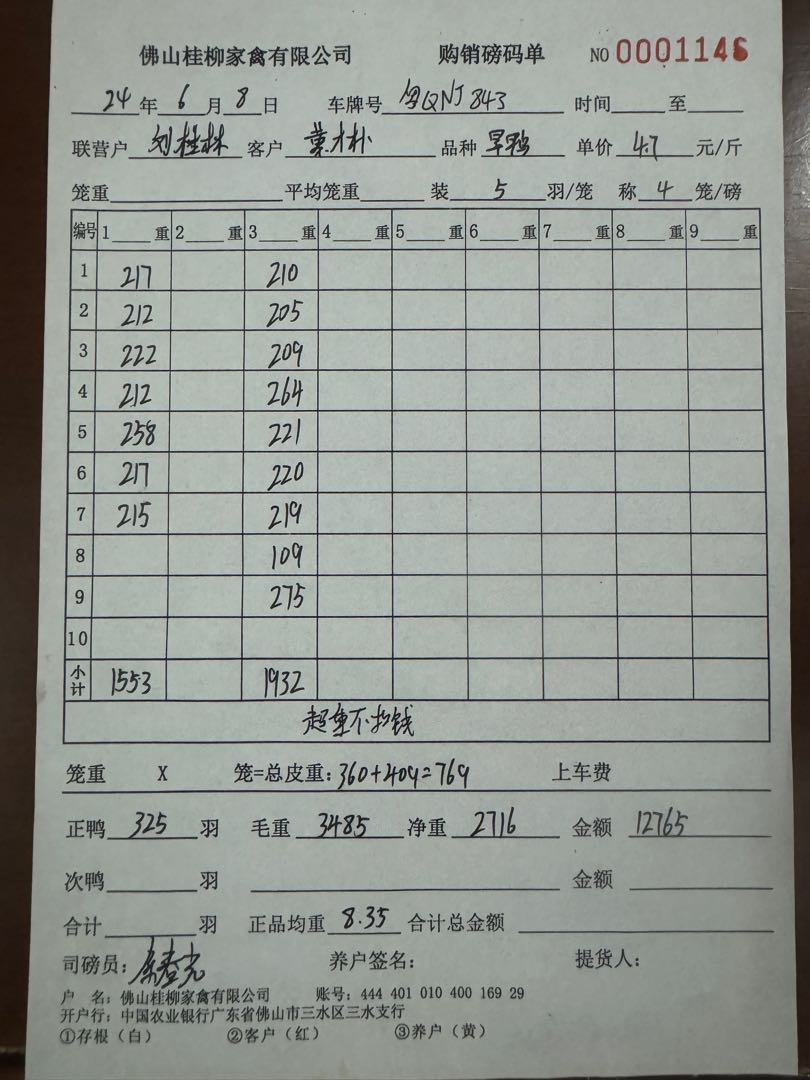 佛山桂柳家禽有限公司 购销磅码单 NO 0001146
24年6月8日 车牌号 粤QNJ843 时间 至
联营户 刘桂林 客户 叶才朴 品种 旱鸭 单价 4.7 元/斤
笼重 平均笼重 装 5 羽/笼 称 4 笼/磅
编号 1 重 2 重 3 重 4 重 5 重 6 重 7 重 8 重 9 重
1 217 210
2 212 205
3 222 209
4 212 264
5 258 221
6 217 220
7 215 219
8 109
9 275
10
小计 1553 1932
超重不扣钱
笼重 X 笼=总皮重:360+409=769 上车费
正鸭 325 羽 毛重 3485 净重 2716 金额 12765
次鸭 羽 金额
合计 羽 正品均重 8.35 合计总金额
司磅员: 养户签名: 提货人:
户 名: 佛山桂柳家禽有限公司 账号: 444 401 010 400 169 29
开户行: 中国农业银行广东省佛山市三水区三水支行
①存根（白） ②客户（红） ③养户（黄）